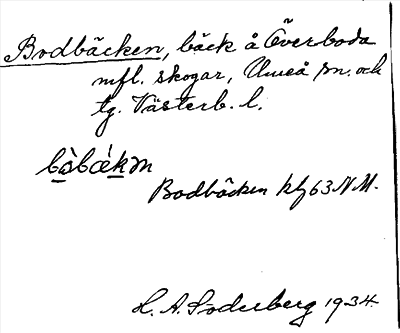 Bodbäcken, bäck å Överboda
mfl. skogar, Umeå sn. och
tg. Västerb. l.
bòbǽkm
Bodbäcken kb 63 NM.
H. A. Söderberg 1934.